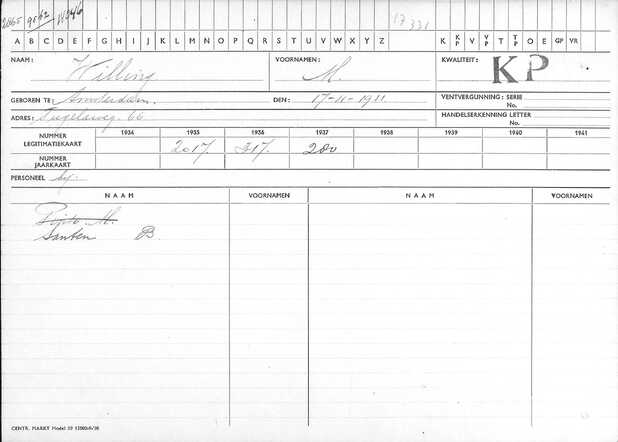 2065 9562
17331
A B C D E F G H I J K L M N O P Q R S T U V W X Y Z K K P V V P T T P O E GP VR
NAAM: Willing VOORNAMEN: M. KWALITEIT: KP
GEBOREN TE: Amsterdam. DEN: 17-11-1911 VENTVERGUNNING: SERIE
No.
ADRES: Tugelaweg 66 HANDELSERKENNING LETTER
No.
NUMMER LEGITIMATIEKAART 1934 1935 1936 1937 1938 1939 1940 1941
2017. 317. 280
NUMMER JAARKAART
PERSONEEL bij
NAAM VOORNAMEN NAAM VOORNAMEN
M.
Santen B.
CENTR. MARKT Model 59